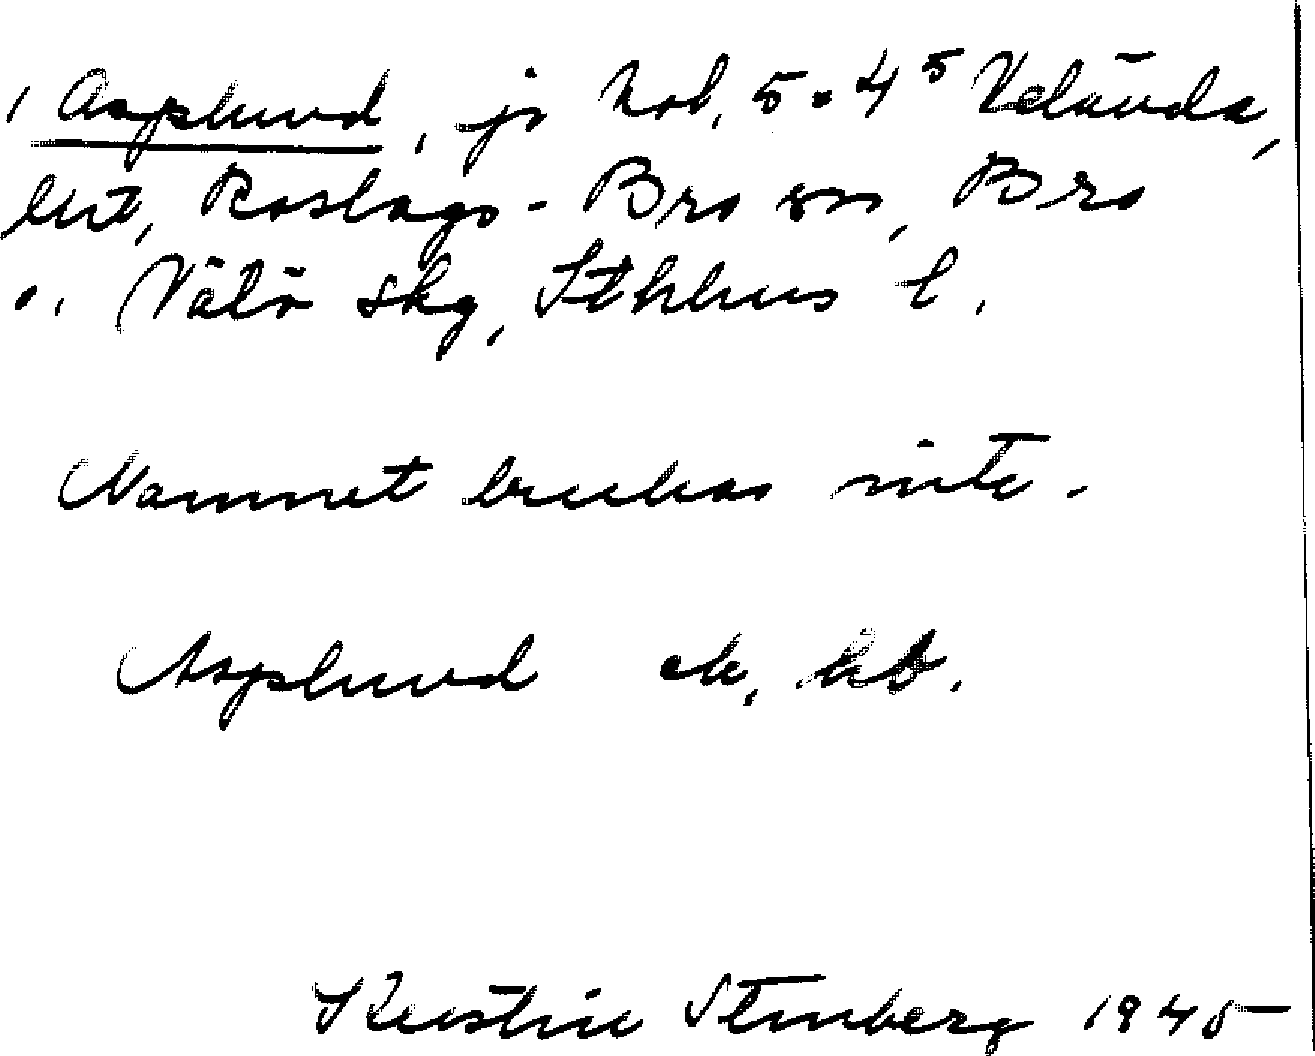 Asplund, jr Nob, 5.4⁵ Velända,
hrt, Roslags-Bro sn, Bro
o. Vätö skg, Sthlms l.
Namnet brukas inte.
Asplund ek. kb.
Kerstin Stenberg 1945